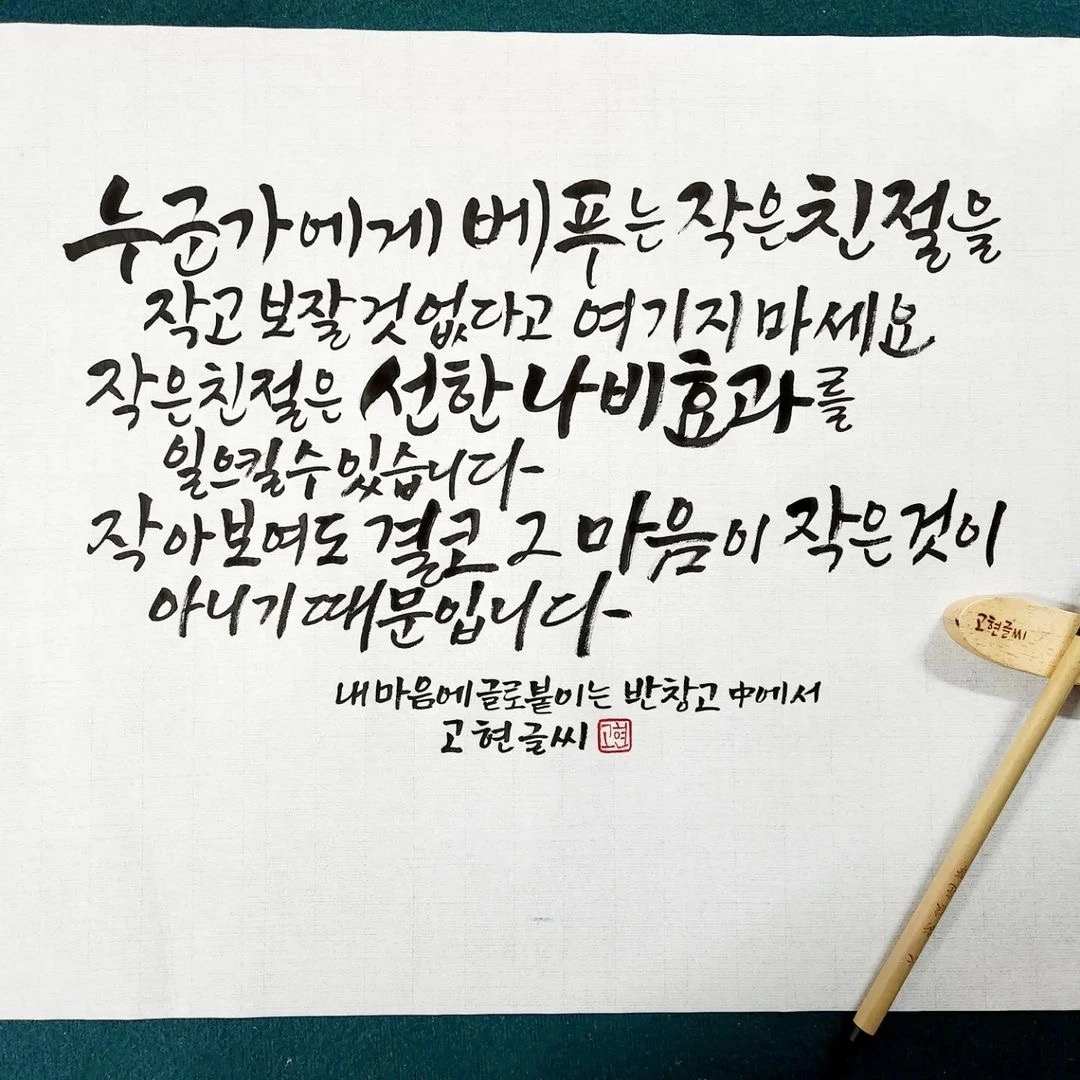 누군가에게 베푸는 작은 친절을
작고 보잘것없다고 여기지 마세요
작은 친절은 선한 나비효과를
일으킬 수 있습니다
작아보여도 결코 그 마음이 작은것이
아니기 때문입니다
내 마음에 글로 붙이는 반창고 中에서
고현글씨
고현
고현글씨